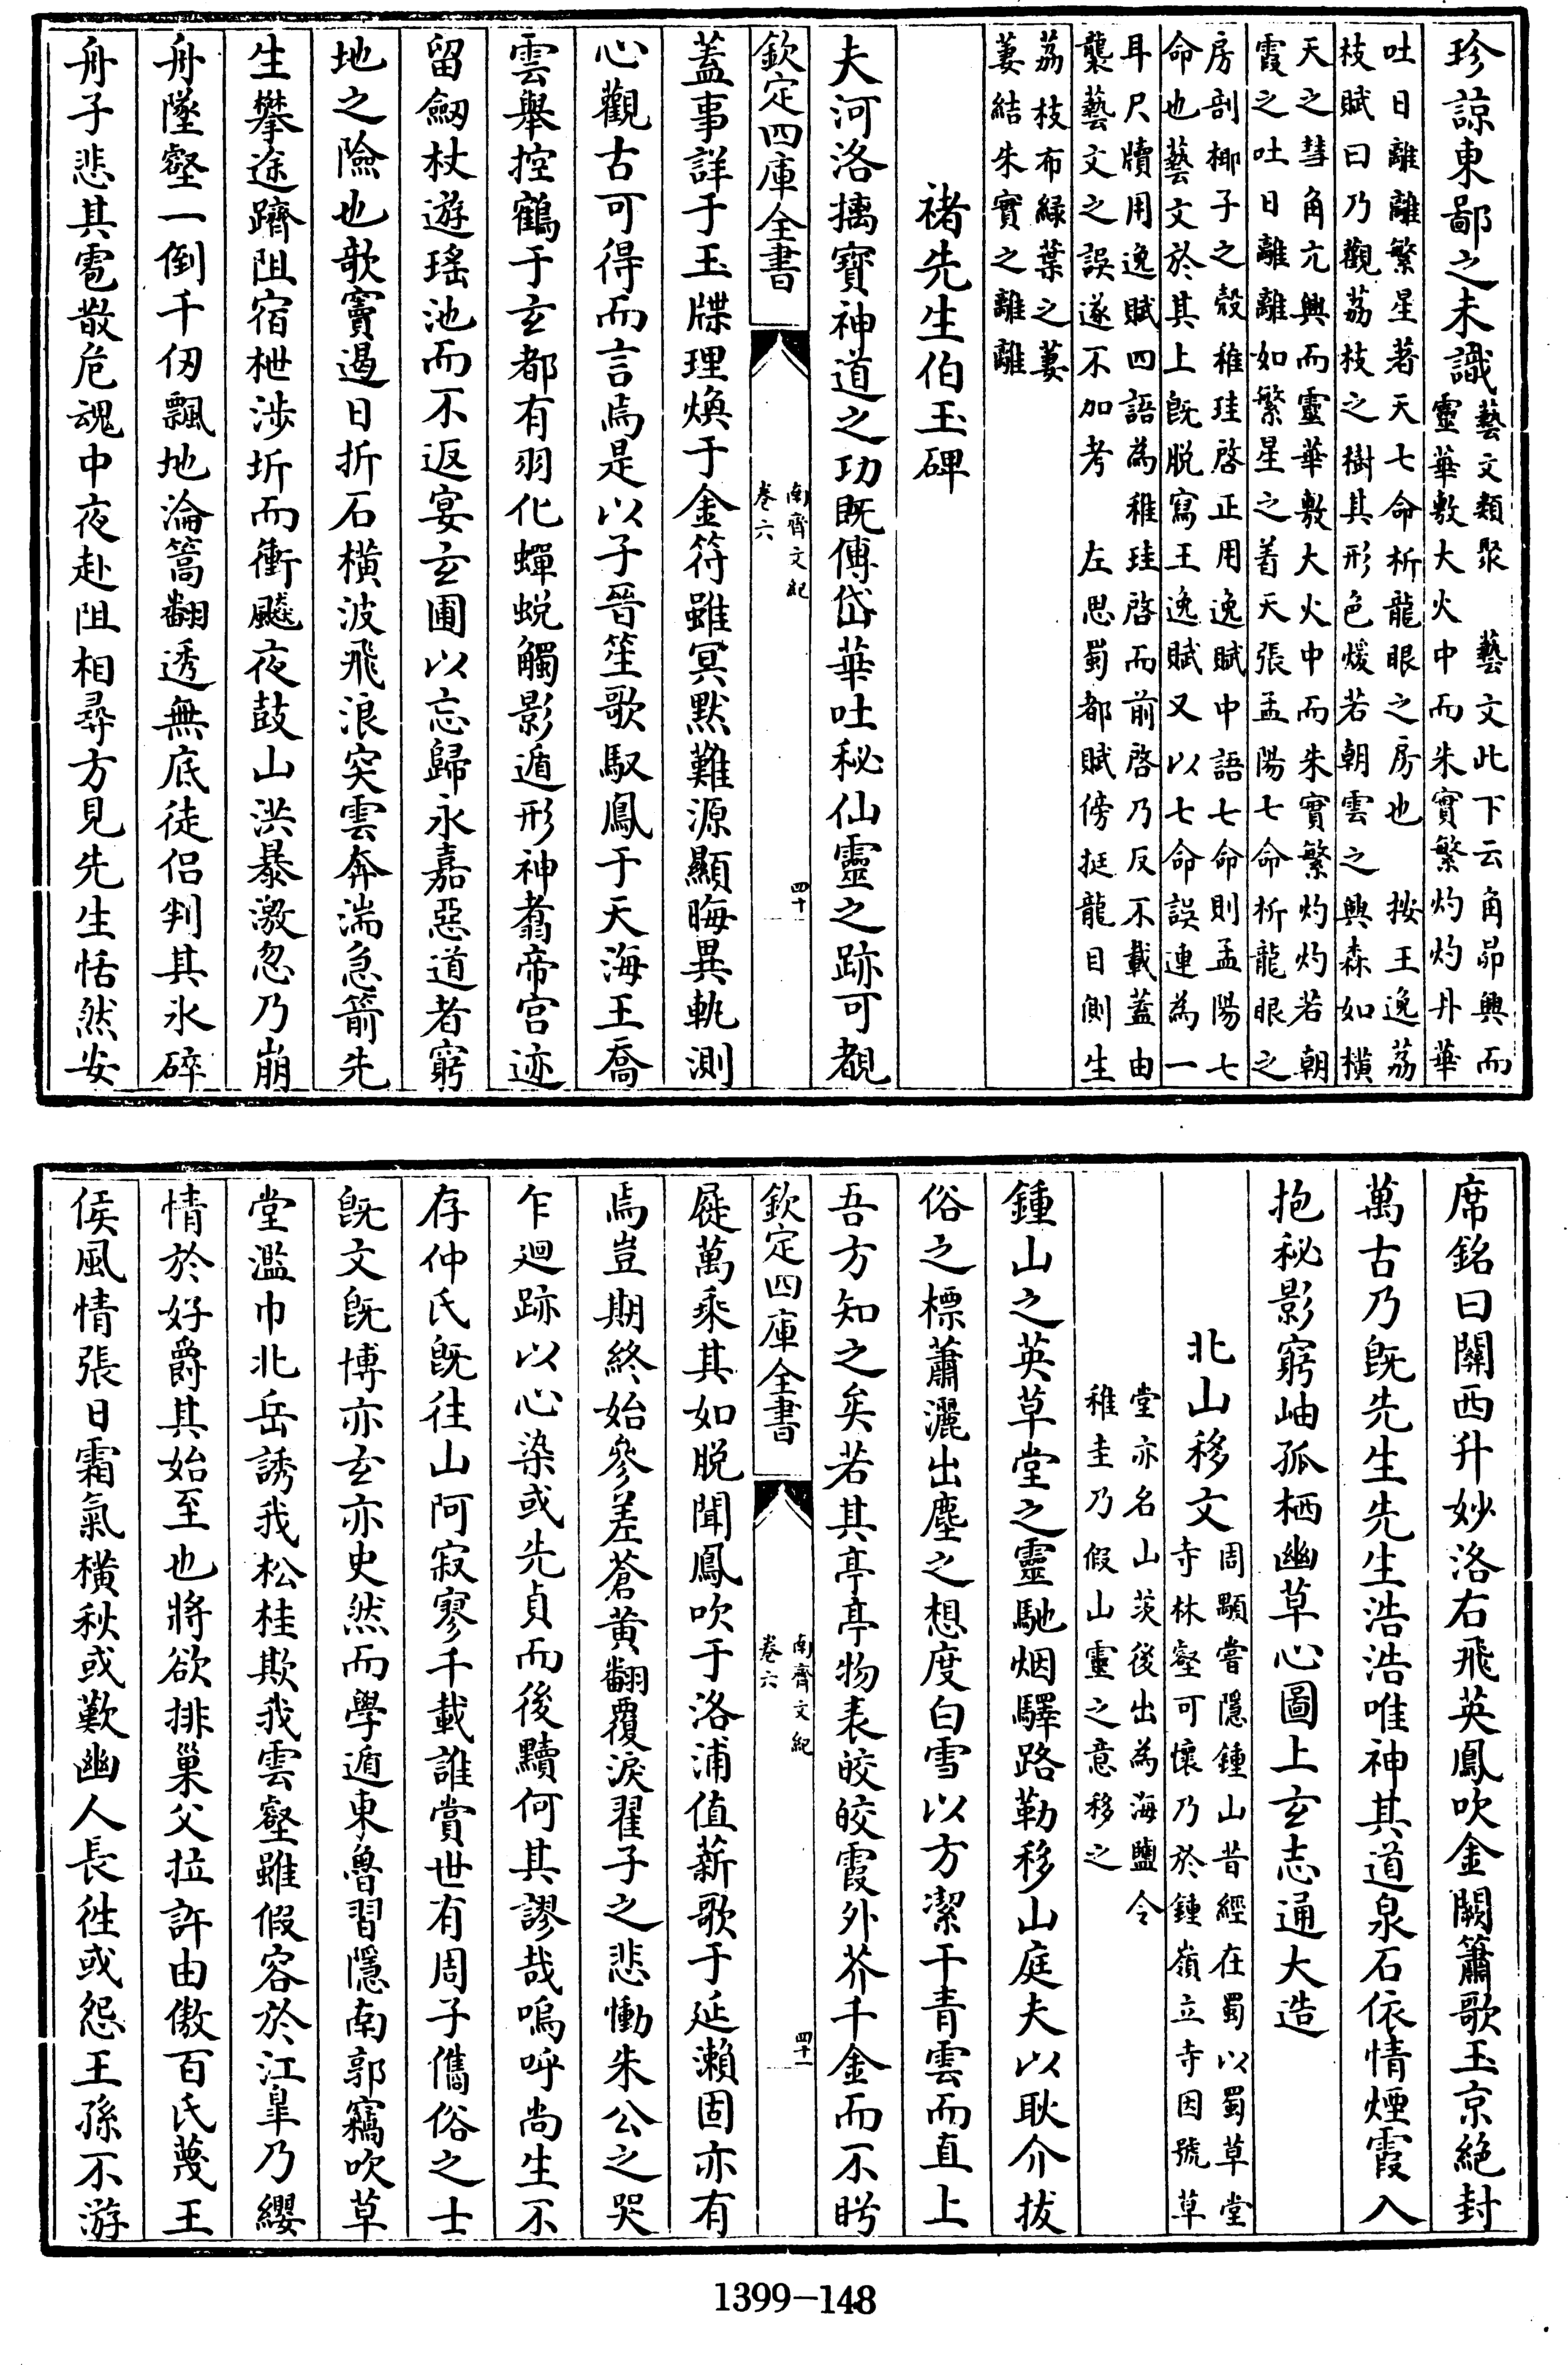 珍諒東鄙之未識藝文類聚　藝文此下云角昴興而
靈華敷大火中而朱實繁灼灼丹華
吐日離離繁星著天七命析龍眼之房也　按王逸荔
枝賦曰乃觀荔枝之樹其形色煖若朝雲之興森如橫
天之彗角亢興而靈華敷大火中而朱實繁灼灼若朝
霞之吐日離離如繁星之着天張孟陽七命析龍眼之
房剖椰子之殼稚珪啓正用逸賦中語七命則孟陽七
命也藝文於其上既脫寫王逸賦又以七命誤連為一
耳尺牘用逸賦四語為稚珪啓而前啓乃反不載蓋由
襲藝文之誤遂不加考　左思蜀都賦傍挺龍目側生
荔枝布緑葉之萋
萋結朱實之離離
褚先生伯玉碑
夫河洛摛寶神道之功既傳岱華吐秘仙靈之跡可覩
欽定四庫全書
南齊文紀
卷六
四十
蓋事詳于玉牒理煥于金符雖冥默難源顯晦異軌測
心觀古可得而言焉是以子晉笙歌馭鳳于天海王喬
雲舉控鶴于玄都有羽化蟬蛻觸影遁形神翥帝宫迹
留劒杖遊瑤池而不返宴玄圃以忘歸永嘉惡道者窮
地之險也欹竇遏日折石橫波飛浪突雲奔湍急箭先
生攀途躋阻宿枻涉圻而衝飈夜鼓山洪暴激忽乃崩
舟墜壑一倒千仞飄地淪篙翻透無底徒侶判其氷碎
舟子悲其雹散危魂中夜赴阻相尋方見先生恬然安
席銘曰關西升妙洛右飛英鳳吹金闕簫歌玉京絶封
萬古乃既先生先生浩浩唯神其道泉石依情煙霞入
抱秘影窮岫孤栖幽草心圖上玄志通大造
北山移文周顒嘗隱鍾山昔經在蜀以蜀草堂
寺林壑可懷乃於鍾嶺立寺因號草
堂亦名山茨後出為海鹽令
稚圭乃假山靈之意移之
鍾山之英草堂之靈馳烟驛路勒移山庭夫以耿介拔
俗之標蕭灑出塵之想度白雪以方潔干青雲而直上
吾方知之矣若其亭亭物表皎皎霞外芥千金而不眄
欽定四庫全書
南齊文紀
卷六
四十一
屣萬乘其如脫聞鳳吹于洛浦值薪歌于延瀨固亦有
焉豈期終始參差蒼黄翻覆淚翟子之悲慟朱公之哭
乍迴跡以心染或先貞而後黷何其謬哉嗚呼尚生不
存仲氏既往山阿寂寥千載誰賞世有周子儁俗之士
既文既博亦玄亦史然而學遁東魯習隱南郭竊吹草
堂濫巾北岳誘我松桂欺我雲壑雖假容於江臯乃纓
情於好爵其始至也將欲排巢父拉許由傲百氏蔑王
侯風情張日霜氣橫秋或歎幽人長徃或怨王孫不游
1399-148